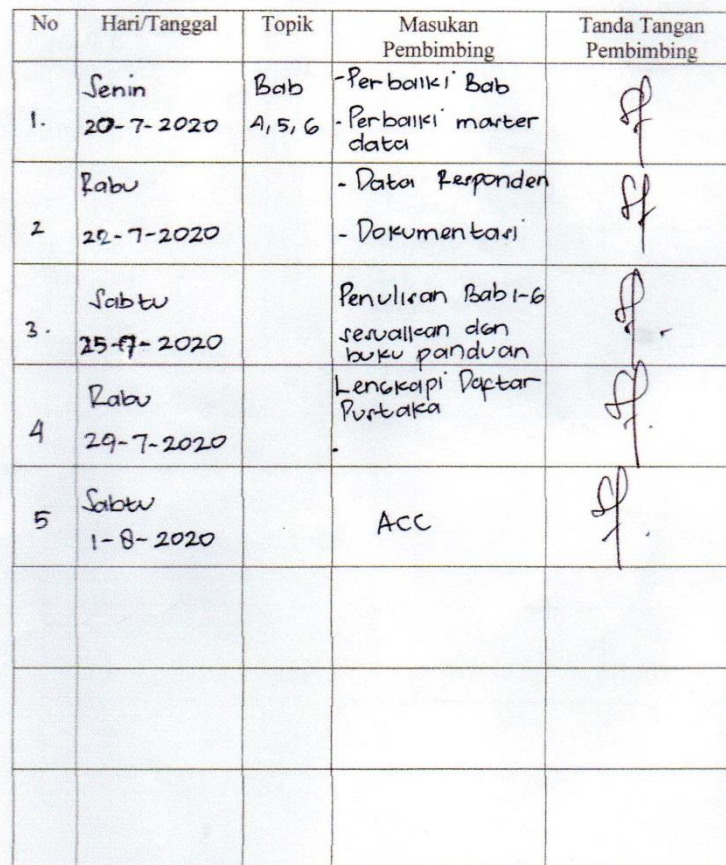 No Hari/Tanggal Topik Masukan Pembimbing Tanda Tangan Pembimbing
1. Senin 20-7-2020 Bab 4, 5, 6 - Perbaiki Bab
- Perbaiki master data
2 Rabu 22-7-2020 - Data Responden
- Dokumentasi
3. Sabtu 25-7-2020 Penulisan Bab 1-6
sesuaikan dgn
buku panduan
4 Rabu 29-7-2020 Lengkapi Daftar
Pustaka
5 Sabtu 1-8-2020 ACC